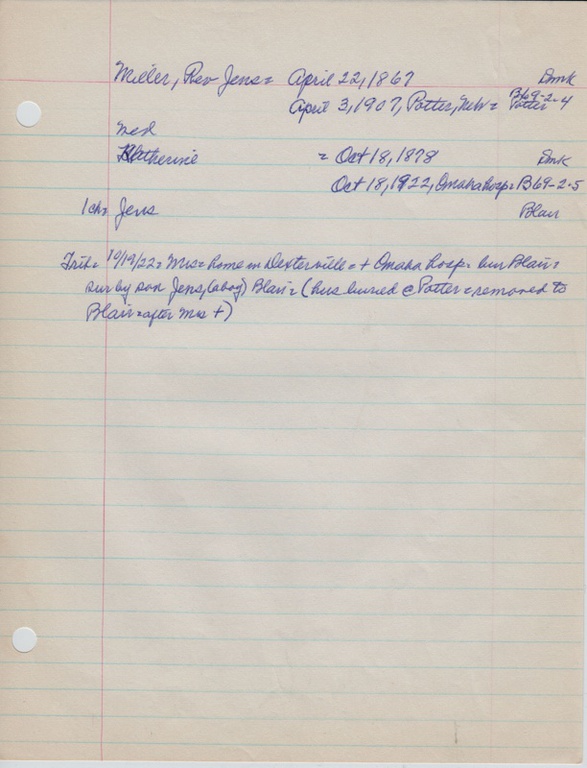 Miller, Rev Jens = April 22, 1867 Dmk
April 3, 1907, Potter, Neb = B69-2-4
Potter
med
Katherine = Oct 18, 1878 Dmk
Oct 18, 1922, Omaha hosp = B69-2-5
1 ch = Jens Blair
Trib = 10/19/22 = Mrs = home in Dexterville = + Omaha hosp = bur Blair =
sur by son Jens, (abov) Blair = (hus buried @ Potter = removed to
Blair = after Mrs +)